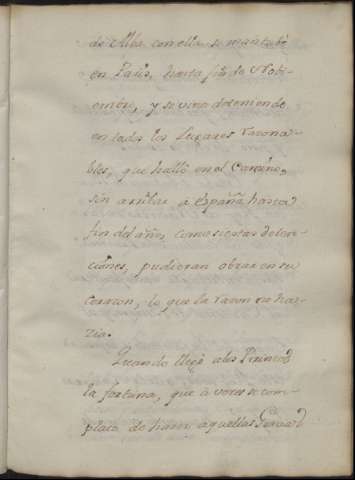 de Alba, con ella se mantubo
en Paris, hasta fin de Nobi-
embre, y se vino deteniendo
en todos los Lugares razona-
bles, que halló en el Camino,
sin arribar a españa hasta
fin del año, como si estas deten-
ciones, pudieran obrar en su
corazon, lo que la razon no ha-
zia.
Quando llegó a los Pirineos
la fortuna, que a vozes se com-
place de hazer aquellas